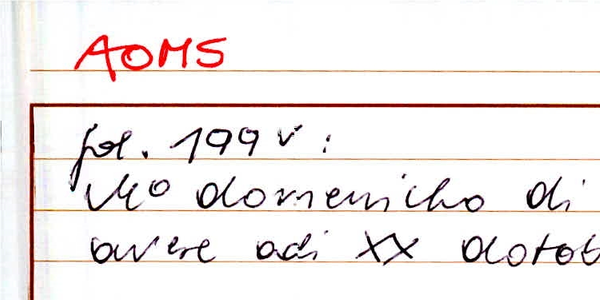 AOMS
fol. 199 v :
Mo domenicho di
avere adi XX dotob